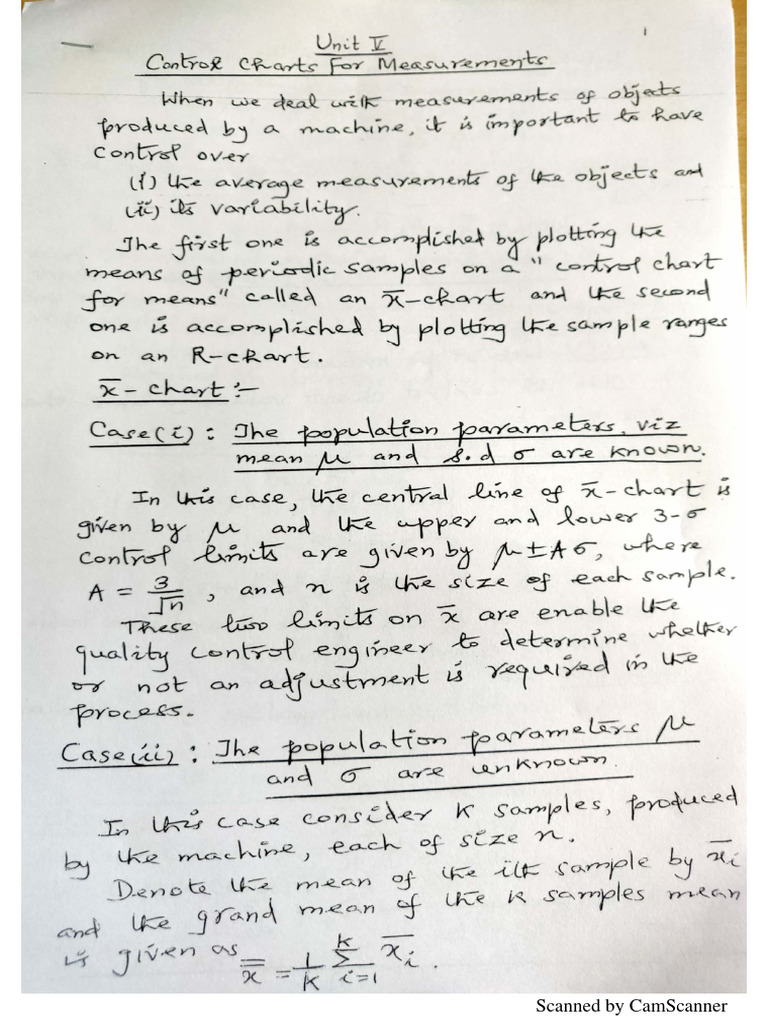 1
Unit V
Control Charts For Measurements
When we deal with measurements of objects
produced by a machine, it is important to have
control over
(i) the average measurements of the objects and
(ii) its variability.
The first one is accomplished by plotting the
means of periodic samples on a "control chart
for means" called an x̅-chart and the second
one is accomplished by plotting the sample ranges
on an R-chart.
x̅ - chart :-
Case(i) : The population parameters, viz
mean μ and s.d σ are known.
In this case, the central line of x̅-chart is
given by μ and the upper and lower 3-σ
control limits are given by μ ± Aσ, where
A = 3/√n , and n is the size of each sample.
These two limits on x̅ are enable the
quality control engineer to determine whether
or not an adjustment is required in the
process.
Case(ii) : The population parameters μ
and σ are unknown.
In this case consider K samples, produced
by the machine, each of size n.
Denote the mean of the ith sample by x̅i
and the grand mean of the K samples mean
is given as
x̿ = 1/K Σ_{i=1}^{K} x̅i .
Scanned by CamScanner